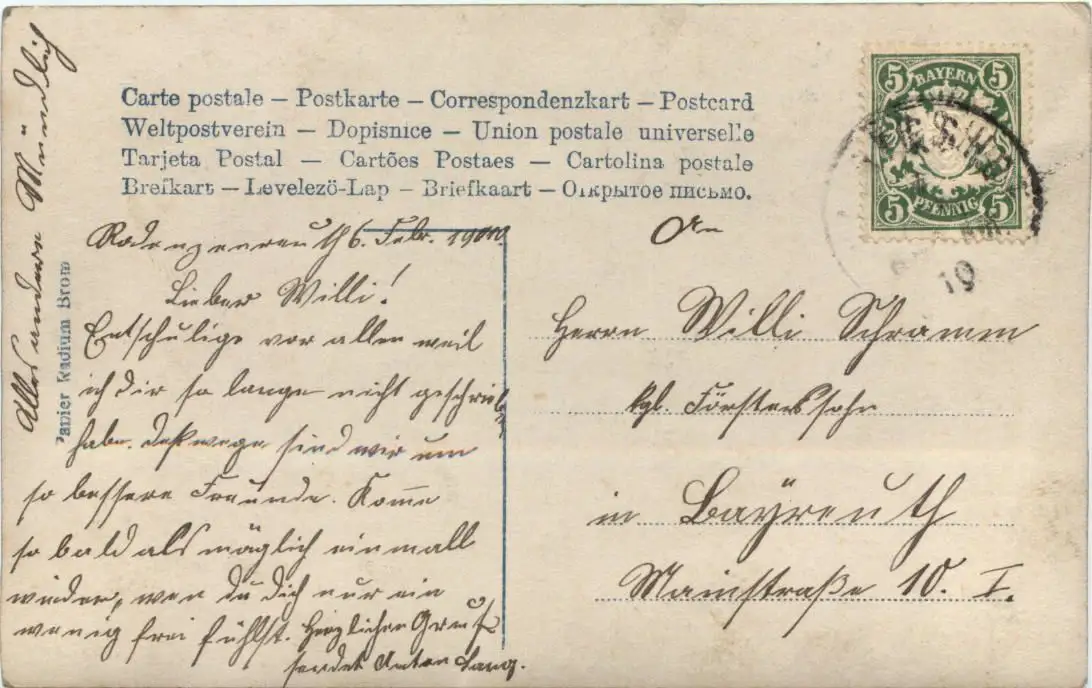 Carte postale – Postkarte – Correspondenzkart – Postcard
Weltpostverein – Dopisnice – Union postale universelle
Tarjeta Postal – Cartões Postaes – Cartolina postale
Brefkart – Levelezö-Lap – Briefkaart – Открытое письмо.
5 BAYERN 5
5 PFENNIG 5
10
6. Febr.
Lieber Willi!
Entschulige vor allen weil
ich dir so lange nicht geschrieben
habe. Deßwege sind wir um
so bessere Freunde. Komme
so bald als möglich einmall
wieder, wen du dich nur ein
wenig frei fühlst. Herzlichen Gruß
sendet Anton Lang.
Alles andere Mündlich
Papier Radium Brom
An
Herrn Willi Schramm
kgl. Försterssohn
in Bayreuth
Mainstraße 10. I.